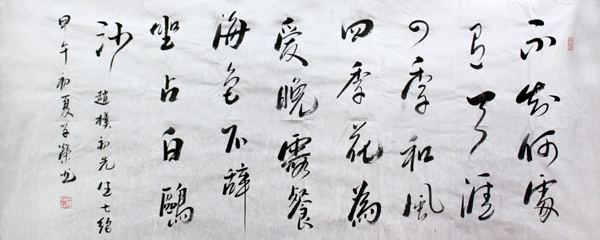 不知何處
有天涯
四季和風
四季花為
愛晚霞餐
海色不辭
坐占白鷗
沙
趙樸初先生七絕
甲午初夏